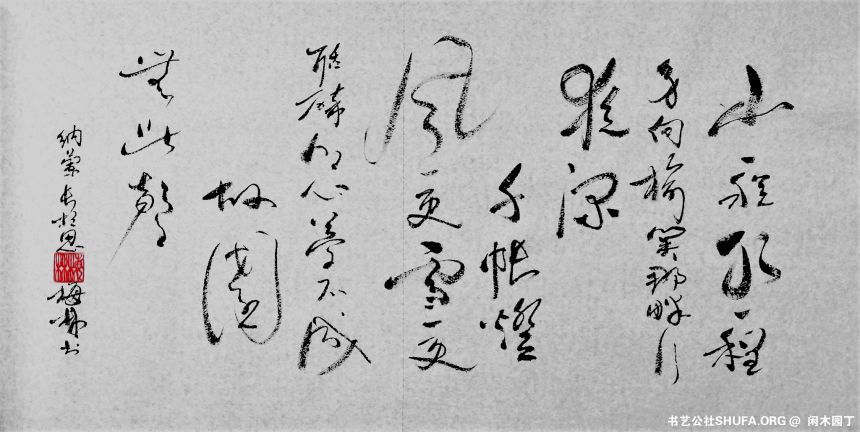 山一程水一程
身向榆關那畔行
夜深
千帳燈
风一更雪一更
聒碎乡心夢不成
故園
無此聲
纳蘭长相思
梅书
书艺公社SHUFA.ORG @ 闲木园丁